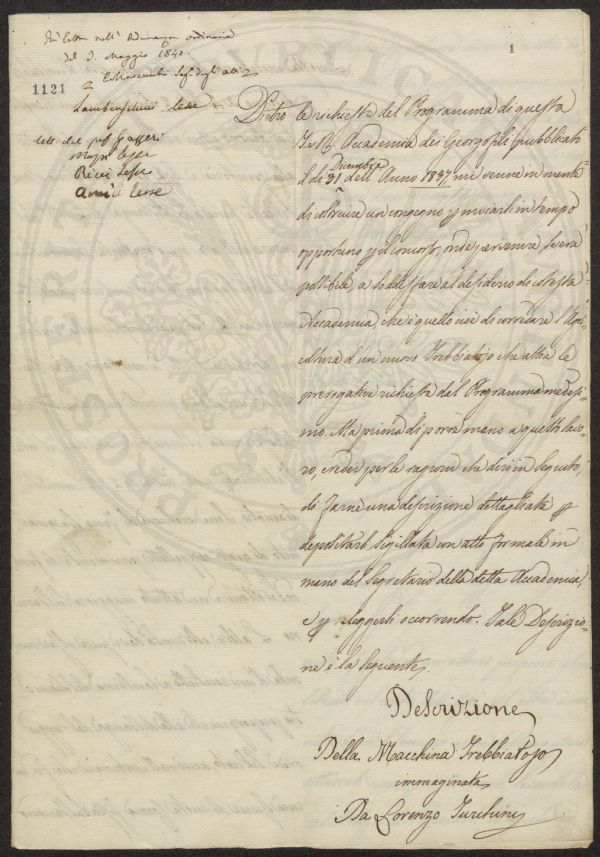 Fu letta nell' Adunanza ordinaria
del 3. Maggio 1840.
Segr. degli atti
1121
1
Lambruschini lesse
lett. del prof Gazzeri
Magn lesse
Ricci lesse
Amici lesse
Dietro le richieste del Programma di questa
I. e R. Accademia dei Georgofili pubblicato
il dì 31 Dicembre dell' Anno 1837, mi venne in mente
di costruire un congegno p inviarli in tempo
opportuno p il concorso, onde pervenire, se sarà
possibile, a soddisfare al desiderio di istessa
Accademia, che è quello cioè di corredare l'Agri-
coltura d'un nuovo Trebbiatojo che abbia le
prerogative richieste dal Programma medesi-
mo. Ma prima di porre mano a questo lavo-
ro, credei per le ragioni che dirò in seguito,
di farne una descrizione dettagliata p
depositarla sigillata con atto formale in
mano del Segretario della detta Accademia,
e p rileggerli occorrendo. Tale Descrizio-
ne è la seguente,
Descrizione
Della Macchina Trebbiatojo
immaginata
Da Lorenzo Turchini